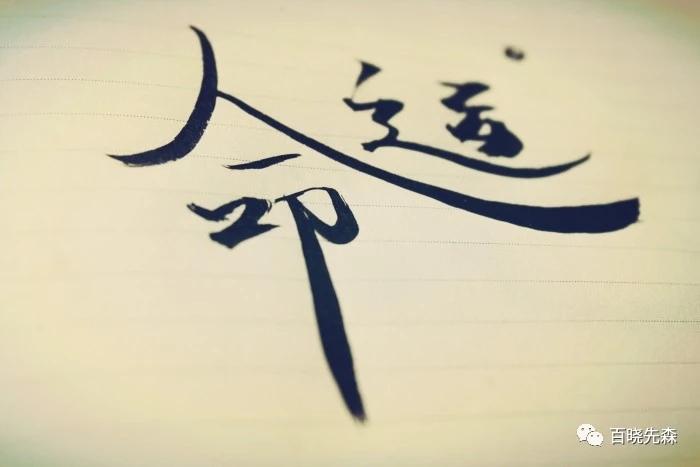 命运
百晓先森